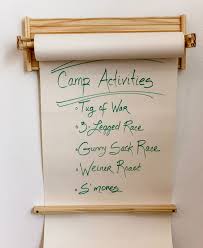 Camp Activities
• Tug of War
• 3-Legged Race
• Gunny Sack Race
• Weiner Roast
• S'mores